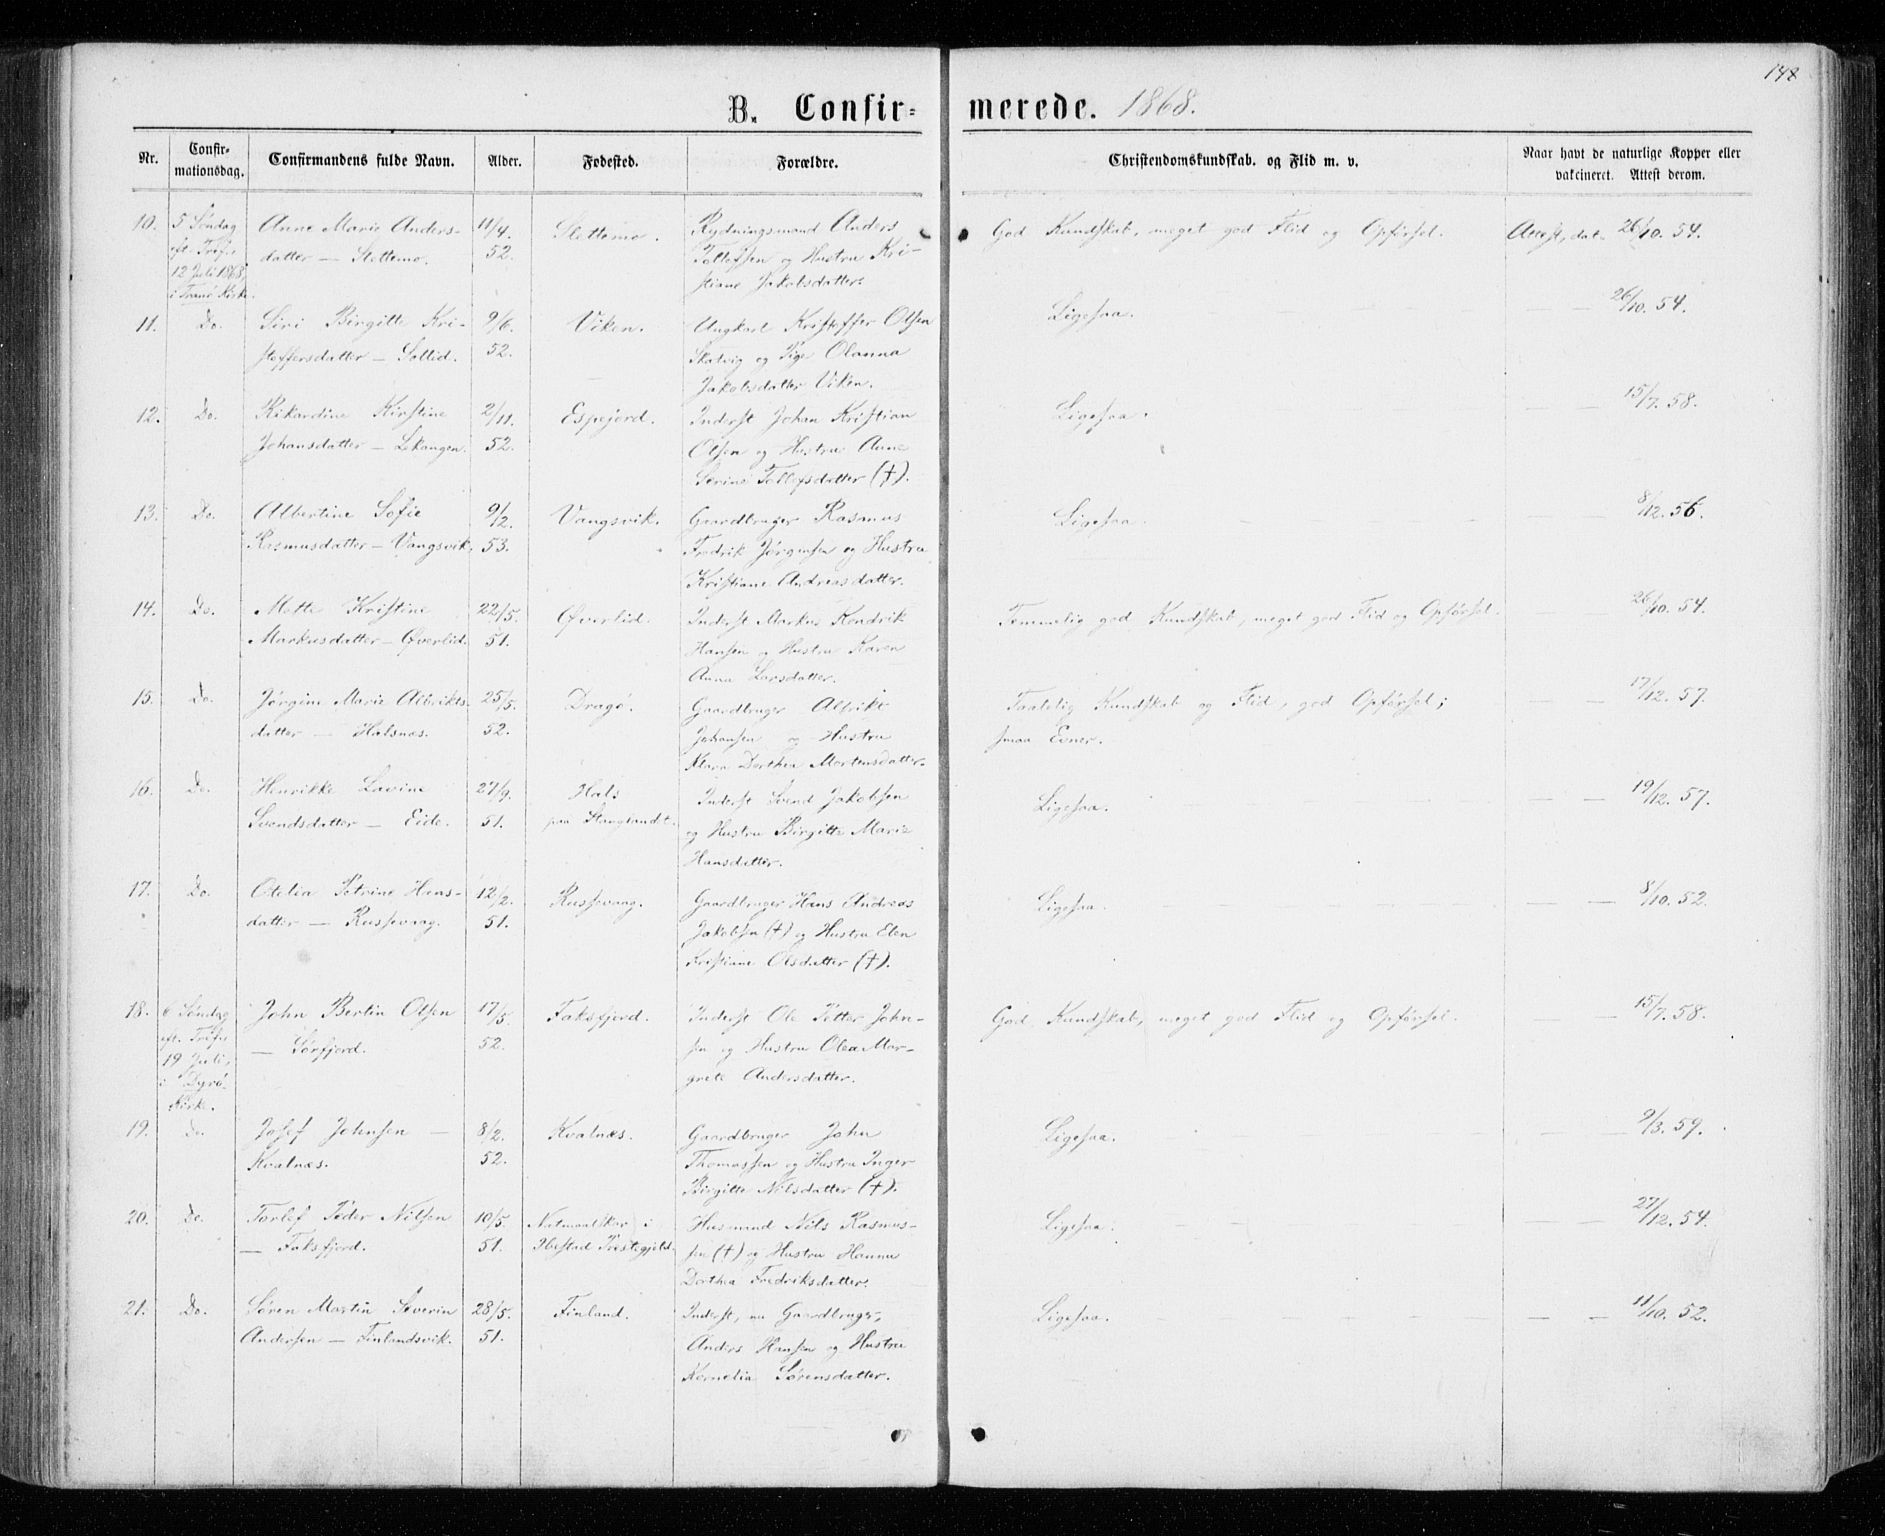 148
B. Confir=merede. 1868.
Nr.
Confir=
mationsdag.
Confirmandens fulde Navn.
Alder.
Fødested.
Forældre.
Christendomskundskab. og Flid m. v.
Naar havt de naturlige Kopper eller
vakcineret. Attest derom.
10. 5 Søndag Anne Marie Anders- 11/4. Slettemo. Rydningsmand Anders God Kundskab, meget god Flid og Opførsel. Attest, dat. 26/10. 54.
eft. Tref. datter — Slettemo. 52. Tollefsen og Hustru Kri-
12 Juli 1868, stiane Jakobsdatter.
i Tranø Kirke.
11. Do. Siri Birgitte Kri- 9/6. Viken. Ungkarl Kristoffer Olsen Ligesaa. — 26/10. 54.
stoffersdatter — Sollid. 52. Skatvig og Pige Olanna
Jakobsdatter Viken.
12. Do. Rikardine Kirstine 2/11. Espejord. Inderst Johan Kristian Ligesaa. — — 15/7. 58.
Johansdatter — Lekangen. 52. Olsen og Hustru Anne
Serine Tollefsdatter (†).
13. Do. Albertine Sofie 9/2. Vangsvik. Gaardbruger Rasmus Ligesaa. — — 8/12. 56.
Rasmusdatter — Vangsvik. 53. Fredrik Jørgensen og Hustru
Kristiane Andreasdatter.
14. Do. Mette Kristine 22/5. Øverlid. Inderst Markus Hendrik Temmelig god Kundskab, meget god Flid og Opførsel. — — 26/10. 54.
Markusdatter — Øverlid. 51. Hansen og Hustru Karen
Anna Larsdatter.
15. Do. Jørgine Marie Albrikts- 25/5. Dragø. Gaardbruger Albrikt Taalelig Kundskab og Flid, god Opførsel; — — 17/12. 57.
datter — Halsnæs. 52. Johansen og Hustru smaa Evner.
Klara Dorthea Mortensdatter.
16. Do. Henrikke Lavine 27/9. Hals Inderst Svend Jakobsen Ligesaa. — — 19/12. 57.
Svendsdatter — Eide. 51. paa Stanglandt. og Hustru Birgitte Marie
Hansdatter.
17. Do. Otelia Petrine Hans- 12/2. Russevaag. Gaardbruger Hans Andreas Ligesaa. — — 8/10. 52.
datter — Russevaag. 51. Jakobsen (†) og Hustru Elen
Kristiane Olsdatter (†).
18. 6 Søndag John Bertin Olsen 17/5. Faksfjord. Inderst Ole Petter John- God Kundskab, meget god Flid og Opførsel. — — 15/7. 58.
eft. Tref., — Sørfjord. 52. sen og Hustru Olea Mar-
19 Juli, grete Andersdatter.
i Dyrø
Kirke.
19. Do. Josef Johnsen — 8/2. Kvalnæs. Gaardbruger John Ligesaa. — — 2/3. 59.
Kvalnæs. 52. Thomassen og Hustru Inger
Birgitte Nilsdatter (†).
20. Do. Torlef Peder Nilsen 10/5. i Husmand Nils Rasmus- Ligesaa. — — 27/12. 54.
— Faksfjord. 51. Ibestad Prestegjeld. sen (†) og Hustru Hanna
Dorthea Fredriksdatter.
21. Do. Søren Martin Severin 28/5. Finland. Inderst, nu Gaardbruger, Ligesaa. — — 11/10. 52.
Andersen — Finlandsvik. 51. Anders Hansen og Hustru
Kornelia Sørensdatter.